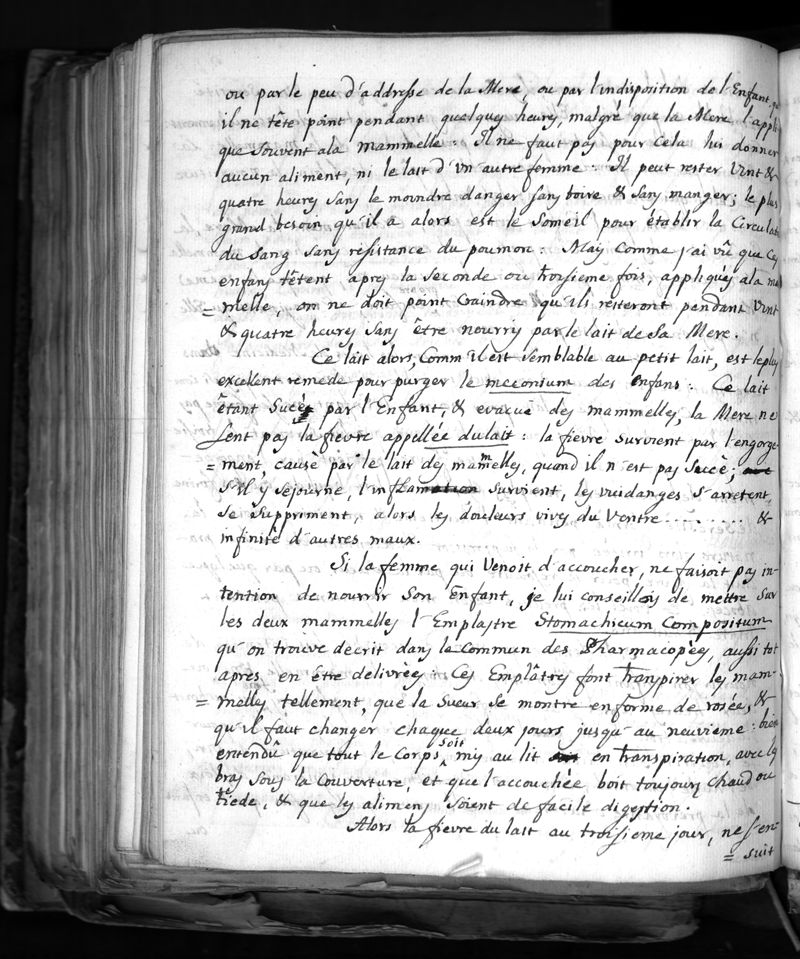 ou par le peu d'addresse de la Mere, ou par l'indisposition de l'Enfant, qu
il ne tête point pendant quelques heures, malgré que la Mere l'appli
que souvent ala mammelle : Il ne faut pas pour cela lui donner
aucun aliment, ni le lait d'vn autre femme : Il peut rester vint &
quatre heures sans le moindre danger sans boire & sans manger; le plus
grand besoin qu'il a alors est le someil pour établir la Circulati
du sang sans résistance du poumon : Mais comme j'ai vû que ces
enfans têtent apres la seconde ou troisieme fois, appliqués ala ma
= melle, on ne doit point craindre qu'ils resteront pendant vint
& quatre heures sans être nourris par le lait de sa Mere.
Ce lait alors, Comm il est semblable au petit lait, est le plus
excellent remede pour purger le meconium des enfans : Ce lait
êtant sucès par l'Enfant, & evacuè des mammelles, la Mere ne
sent pas la fievre appellée du lait : la fievre survient par l'engorge
= ment, causè par le lait des mammelles, quand il n'est pas sucè;
s'il y sejourne, l'inflamation survient, les vuidanges s'arretent,
se suppriment, alors les douleurs vives du ventre ......... &
infinité d'autres maux.
Si la femme qui venoit d'accoucher, ne faisoit pas in-
tention de nourrir son Enfant, je lui conseillois de mettre sur
les deux mammelles l'Emplastre Stomachicum Compositum
qu'on trouve décrit dans le commun des Pharmacopèes, aussi tot
apres en étre delivrèe : Ces Emplâtres font transpirer les mam-
= melles tellement, que la sueur se montre en forme de rosée, &
qu'il faut changer chaque deux jours jusqu'au neuvieme : bien
entendû que tout le corps soit mis au lit en transpiration, avec les
bras sous la couverture, et que l'accouchée boit toujours chaud ou
tiede, & que les alimens soient de facile digestion.
Alors la fievre du lait au troisieme jour, ne s'en-
= suit